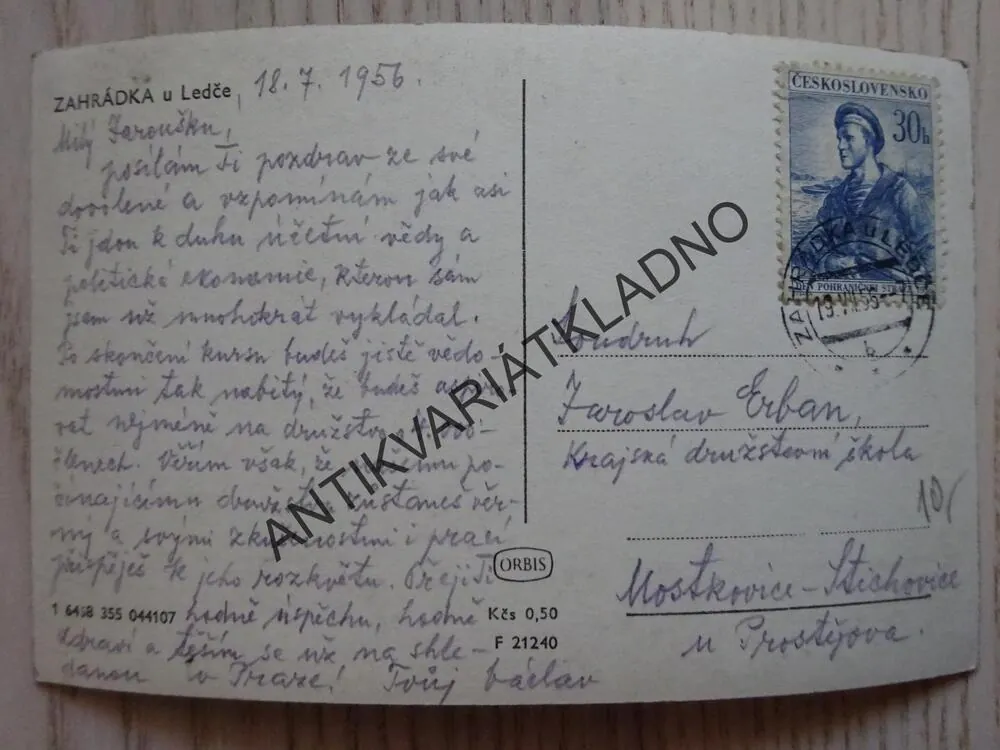 ZAHRÁDKA u Ledče, 18. 7. 1956.
Milý Jaroušku,
posílám Ti pozdrav ze své
dovolené a vzpomínám jak asi
Ti jdou k duhu účetní vědy a
politická ekonomie, kterou sám
jsem už mnohokrát vykládal.
Po skončení kursu budeš jistě vědo-
mostmi tak nabitý, že budeš
nejméně na družstvo
členech. Věřím však, že po-
čínajícímu družstvu zůstaneš věr-
ný a svými zkušenostmi i prací
přispěješ k jeho rozkvětu. Přeji Ti
hodně úspěchu, hodně
zdraví a těším se už na shle-
danou v Praze! Tvůj Václav
1 6458 355 044107
ORBIS
Kčs 0,50
F 21240
ČESKOSLOVENSKO
30h
DEN POHRANIČNÍ
ZAHRÁDKA u LEDČE
b
Soudruh
Jaroslav Erban,
Krajská družstevní škola
Mostkovice-Stichovice
u Prostějova.
10/
ANTIKVARIÁTKLADNO